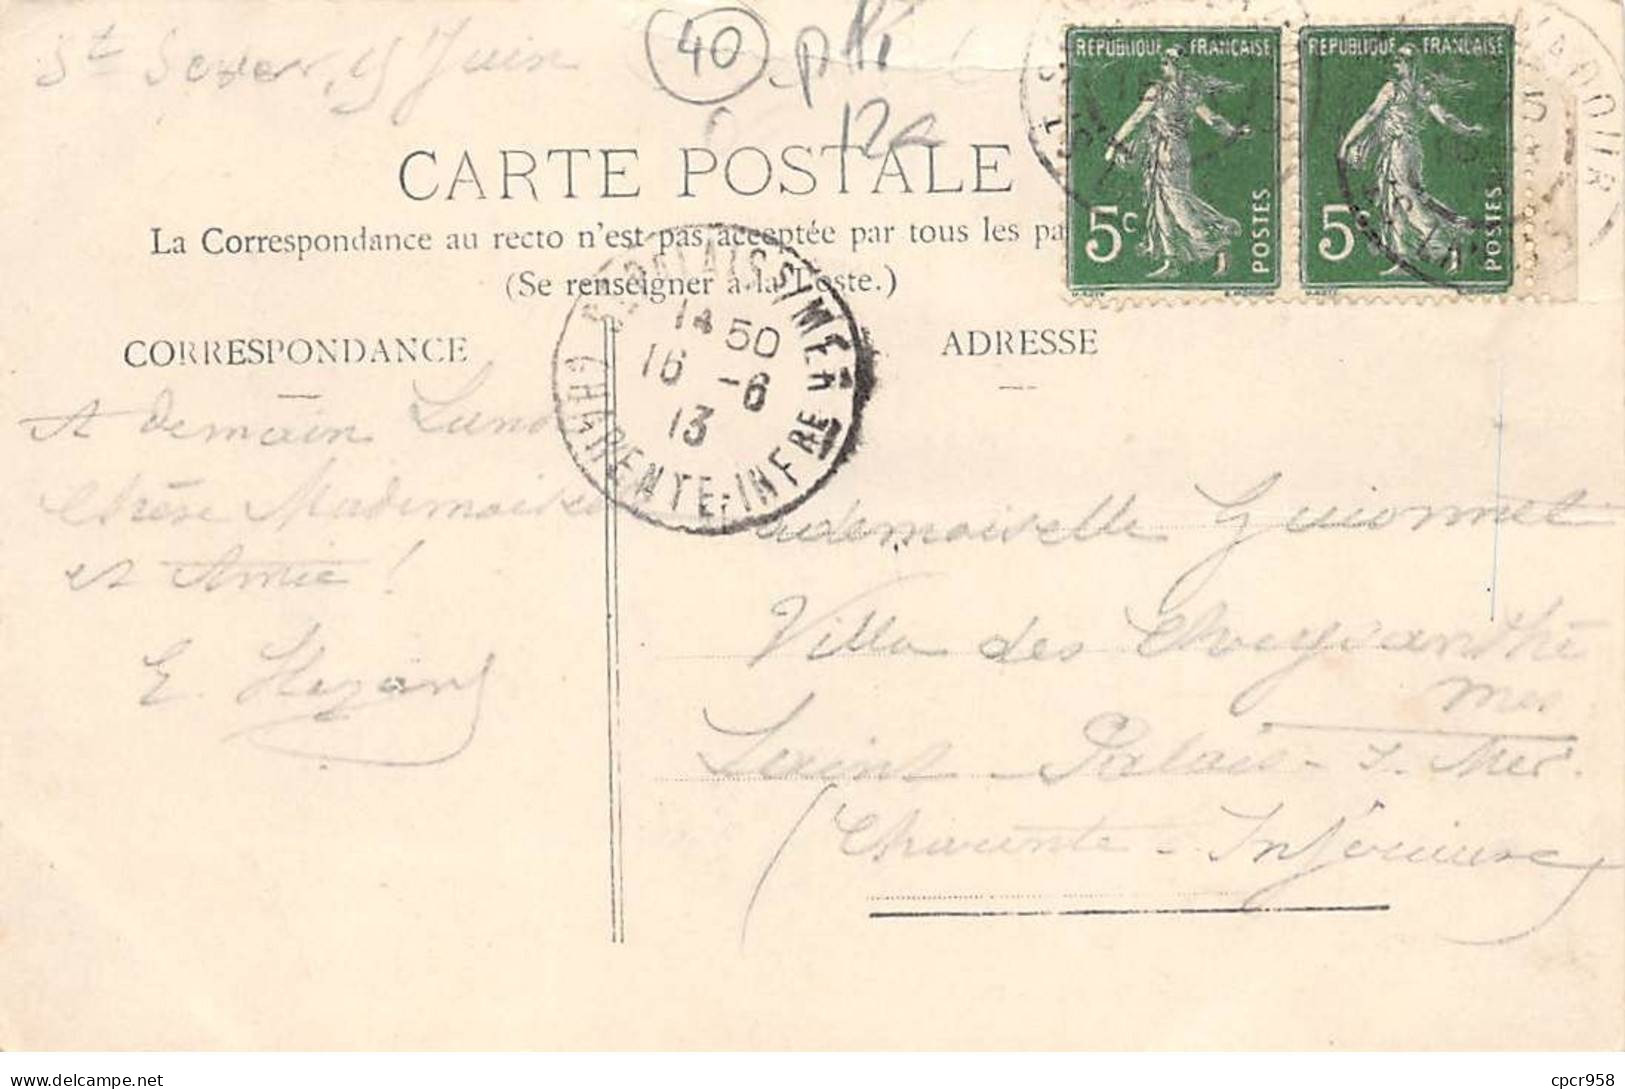 St Sever, 15 Juin
40
pli
12e
CARTE POSTALE
La Correspondance au recto n'est pas acceptée par tous les pa
(Se renseigner à la Poste.)
REPUBLIQUE FRANÇAISE
5c
POSTES
REPUBLIQUE FRANÇAISE
5c
POSTES
ST PALAIS S/MER
14 50
16 -6
13
CHARENTE-INFRE
CORRESPONDANCE
ADRESSE
A demain Lund
Chère Mademoise
et Amie !
ademoiselle Guionnet
Villa des Chrysanthè
mes
Saint-Palais-s. Mer.
(Charente-Inférieure)
cpcr958